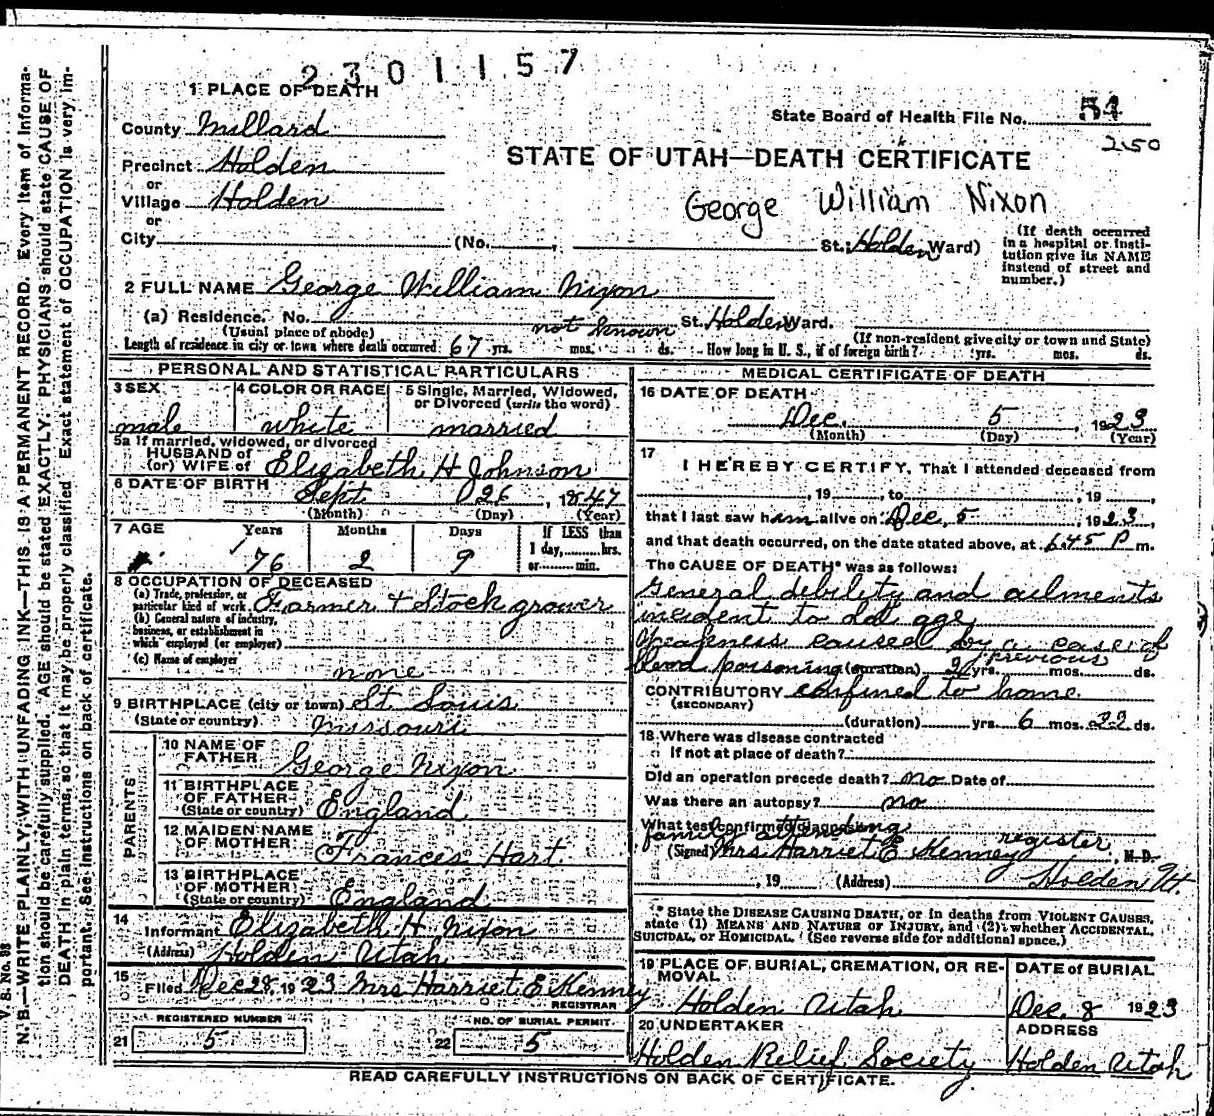 2301157
1 PLACE OF DEATH
State Board of Health File No. 54
250
County Millard
STATE OF UTAH—DEATH CERTIFICATE
Precinct Holden
or
Village Holden
or
George William Nixon
City (No. , St.; Holden Ward)
(If death occurred in a hospital or institution give its NAME instead of street and number.)
2 FULL NAME George William Nixon
(a) Residence. No. not known St. Holden Ward.
(Usual place of abode) (If non-resident give city or town and State)
Length of residence in city or town where death occurred 67 yrs. mos. ds. How long in U. S., if of foreign birth? yrs. mos. ds.
PERSONAL AND STATISTICAL PARTICULARS
3 SEX 4 COLOR OR RACE 5 Single, Married, Widowed, or Divorced (write the word)
male white married
5a If married, widowed, or divorced
HUSBAND of
(or) WIFE of Elizabeth H Johnson
6 DATE OF BIRTH
Sept 26, 1847
(Month) (Day) (Year)
7 AGE Years Months Days If LESS than
1 day, hrs.
or min.
76 2 9
8 OCCUPATION OF DECEASED
(a) Trade, profession, or particular kind of work Farmer + Stock grower
(b) General nature of industry, business, or establishment in which employed (or employer)
(c) Name of employer
none
9 BIRTHPLACE (city or town) St Louis
(State or country) Missouri
PARENTS
10 NAME OF FATHER George Nixon
11 BIRTHPLACE OF FATHER (State or country) England
12 MAIDEN NAME OF MOTHER Frances Hart
13 BIRTHPLACE OF MOTHER (State or country) England
14
Informant Elizabeth H Nixon
(Address) Holden Utah
15
Filed Dec 28 1923 Mrs Harriet E Kenney
REGISTRAR
REGISTERED NUMBER NO. OF BURIAL PERMIT
21 5 22 5
MEDICAL CERTIFICATE OF DEATH
16 DATE OF DEATH
Dec. 5, 1923
(Month) (Day) (Year)
17
I HEREBY CERTIFY, That I attended deceased from
, 19 , to , 19 ,
that I last saw him alive on Dec, 5, 1923,
and that death occurred, on the date stated above, at 6.45 P m.
The CAUSE OF DEATH* was as follows:
General debility and ailments
incident to old age
caused by a case of
poisoning (duration) 2 yrs. previous mos. ds.
CONTRIBUTORY confined to home
(SECONDARY)
(duration) yrs. 6 mos. 22 ds.
18 Where was disease contracted
if not at place of death?
Did an operation precede death? no Date of
Was there an autopsy? no
What test confirmed diagnosis?
family attending
(Signed) Mrs Harriet E Kenney register, M.D.
, 19 (Address) Holden Ut.
* State the DISEASE CAUSING DEATH, or in deaths from VIOLENT CAUSES,
state (1) MEANS AND NATURE OF INJURY, and (2) whether ACCIDENTAL,
SUICIDAL, or HOMICIDAL. (See reverse side for additional space.)
19 PLACE OF BURIAL, CREMATION, OR REMOVAL DATE of BURIAL
Holden Utah Dec. 8 1923
20 UNDERTAKER ADDRESS
Holden Relief Society Holden Utah
READ CAREFULLY INSTRUCTIONS ON BACK OF CERTIFICATE.
V. S. No. 98
N. B.—WRITE PLAINLY WITH UNFADING INK—THIS IS A PERMANENT RECORD. Every item of informa-
tion should be carefully supplied. AGE should be stated EXACTLY. PHYSICIANS should state CAUSE OF
DEATH in plain terms, so that it may be properly classified. Exact statement of OCCUPATION is very im-
portant. See instructions on back of certificate.